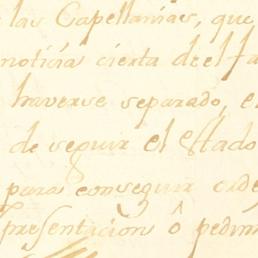 las Capellanias, que
noticia cierta de el fa
haverse separado, e
de seguir el estado
para conseguir orde
presentacion ô pedim